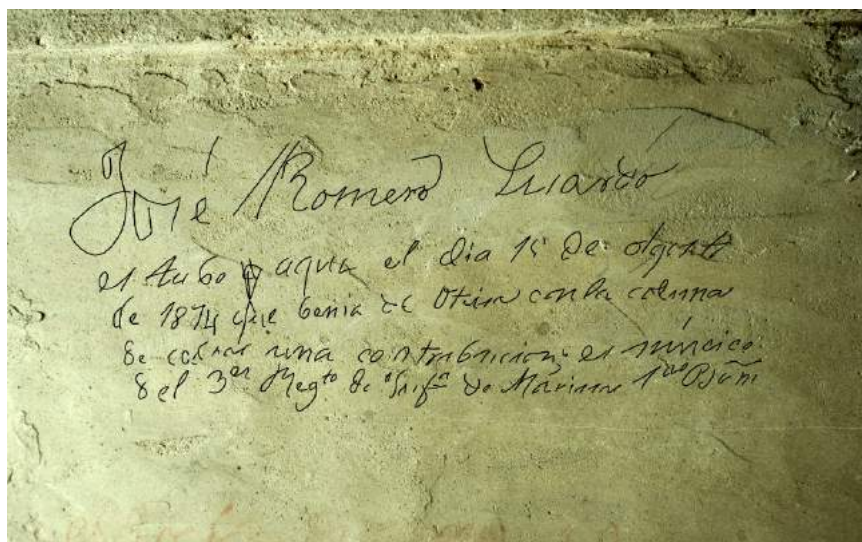 José Romero Suardo
estubo y aquia el dia 15 de Agosto
de 1874 que benia de Oteiza con la coluna
de cobrar una contribucion: es músico
del 3er Regto de Infa de Marina 1er Bón